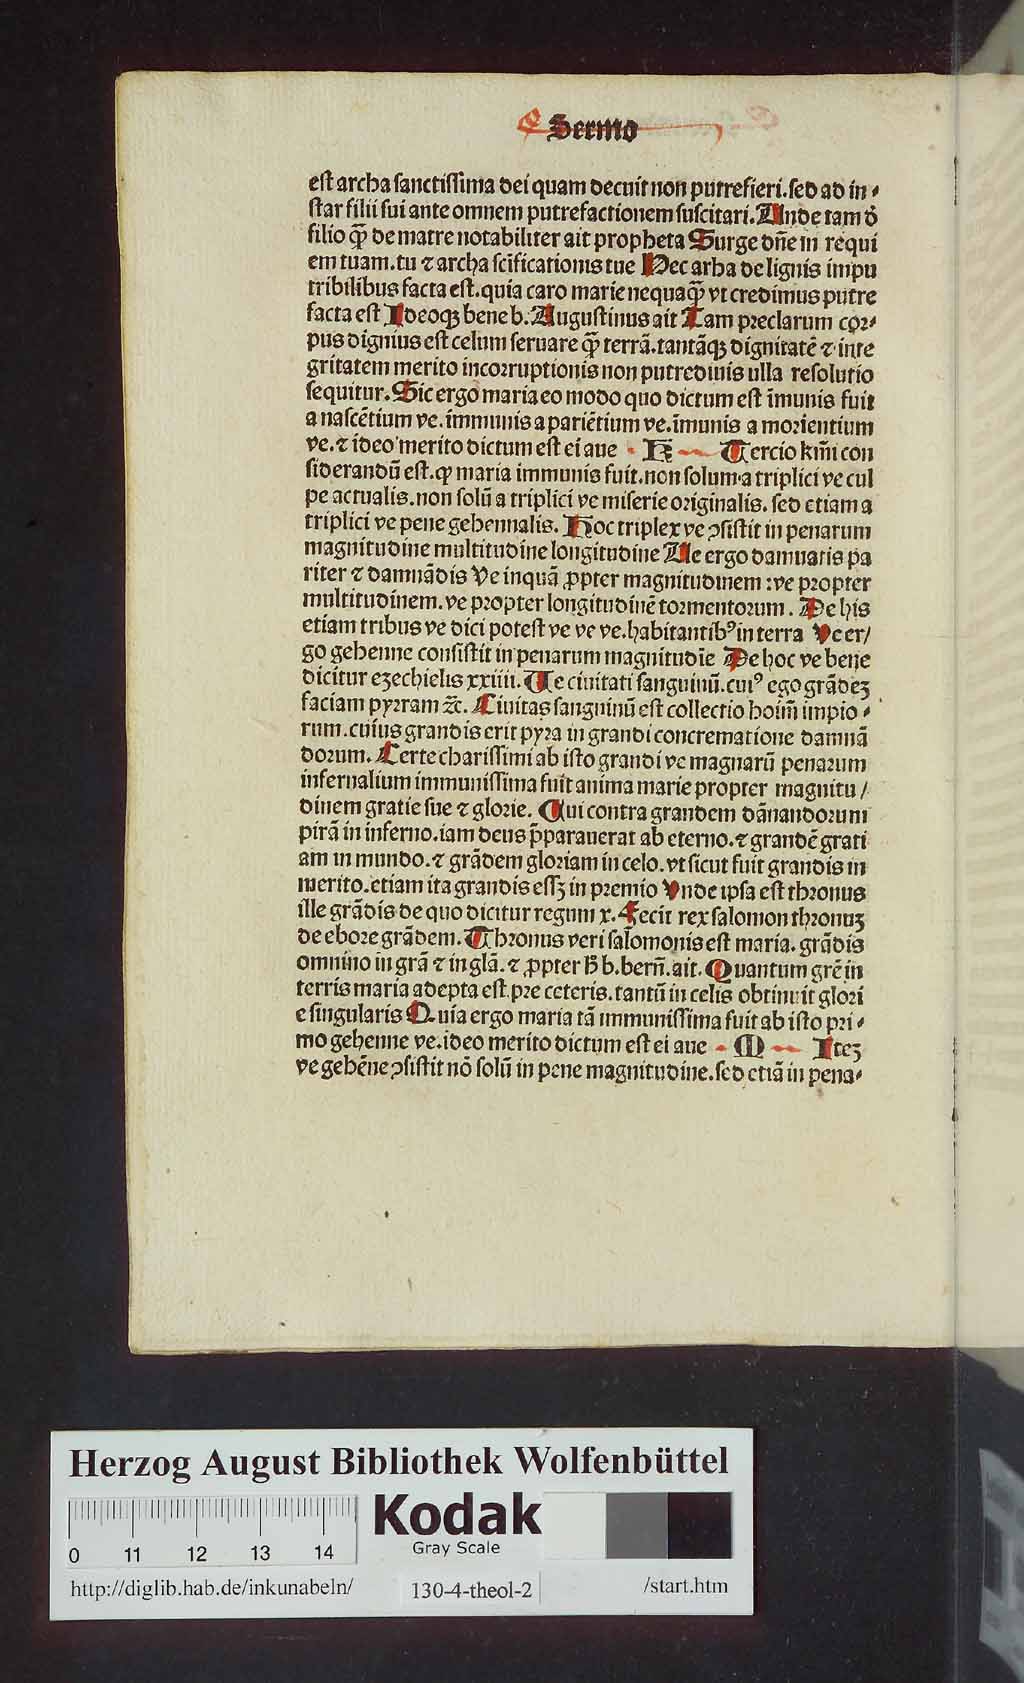 Sermo
est archa sanctissima dei quam decuit non putrefieri.sed ad in-
star filii sui ante omnem putrefactionem suscitari. Unde tam ð
filio qȝ̄ de matre notabiliter ait propheta Surge dn̄e in requi
em tuam.tu ⁊ archa scīficationis tue Hec arha de lignis impu
tribilibus facta est.quia caro marie nequaqȝ̄ vt credimus putre
facta est Ideoqȝ bene b. Augustinus ait Tam preclarum cor-
pus dignius est celum seruare qȝ̄ terrā.tantāqȝ dignitatē ⁊ inte
gritatem merito incorruptionis non putredinis ulla resolutio
sequitur. Sic ergo maria eo modo quo dictum est īmunis fuit
a nascētium ve. immunis a pariētium ve. īmunis a morientium
ve. ⁊ ideo merito dictum est ei aue K Tercio km̄i con
siderandū est.ꝙ maria immunis fuit.non solum a triplici ve cul
pe actualis.non solū a triplici ve miserie originalis. sed etiam a
triplici ve pene gehennalis. Hoc triplex ve ꝯsistit in penarum
magnitudine multitudine longitudine Ue ergo damnatis pa
riter ⁊ damnādis Ve inquā ꝓpter magnitudinem :ve propter
multitudinem.ve propter longitudinē tormentorum. De his
etiam tribus ve dici potest ve ve ve.habitantibꝰ in terra Ve er/
go gehenne consistit in penarum magnitudīe De hoc ve bene
dicitur ezechielis xxiiii. Ue ciuitati sanguinū.cuiꝰ ego grādeȝ
faciam pyrram ⁊c̄. Ciuitas sanguinū est collectio hoim̄ impio-
rum.cuius grandis erit pyra in grandi concrematione damnā
dorum. Certe charissimi ab isto grandi ve magnarū penarum
infernalium immunissima fuit anima marie propter magnitu/
dinem gratie sue ⁊ glorie. Cui contra grandem dānandorum
pirā in inferno.iam deus p̄parauerat ab eterno.⁊ grandē grati
am in mundo.⁊ grādem gloriam in celo.vt sicut fuit grandis in
merito.etiam ita grandis essȝ in premio Vnde ipsa est thronus
ille grādis de quo dicitur regum x. Fecit rex salomon thronuȝ
de ebore grādem. Thronus veri salomonis est maria. grādis
omnino in grā ⁊ in glā. ⁊ ꝓpter h̄ b. bern̄. ait. Quantum grē in
terris maria adepta est pre ceteris.tantū in celis obtinuit glori
e singularis Quia ergo maria tā immunissima fuit ab isto pri-
mo gehenne ve.ideo merito dictum est ei aue M Iteȝ
ve gehēne ꝯsistit nō solū in pene magnitudine.sed etiā in pena-
Herzog August Bibliothek Wolfenbüttel
Kodak
Gray Scale
0 11 12 13 14
http://diglib.hab.de/inkunabeln/ 130-4-theol-2 /start.htm